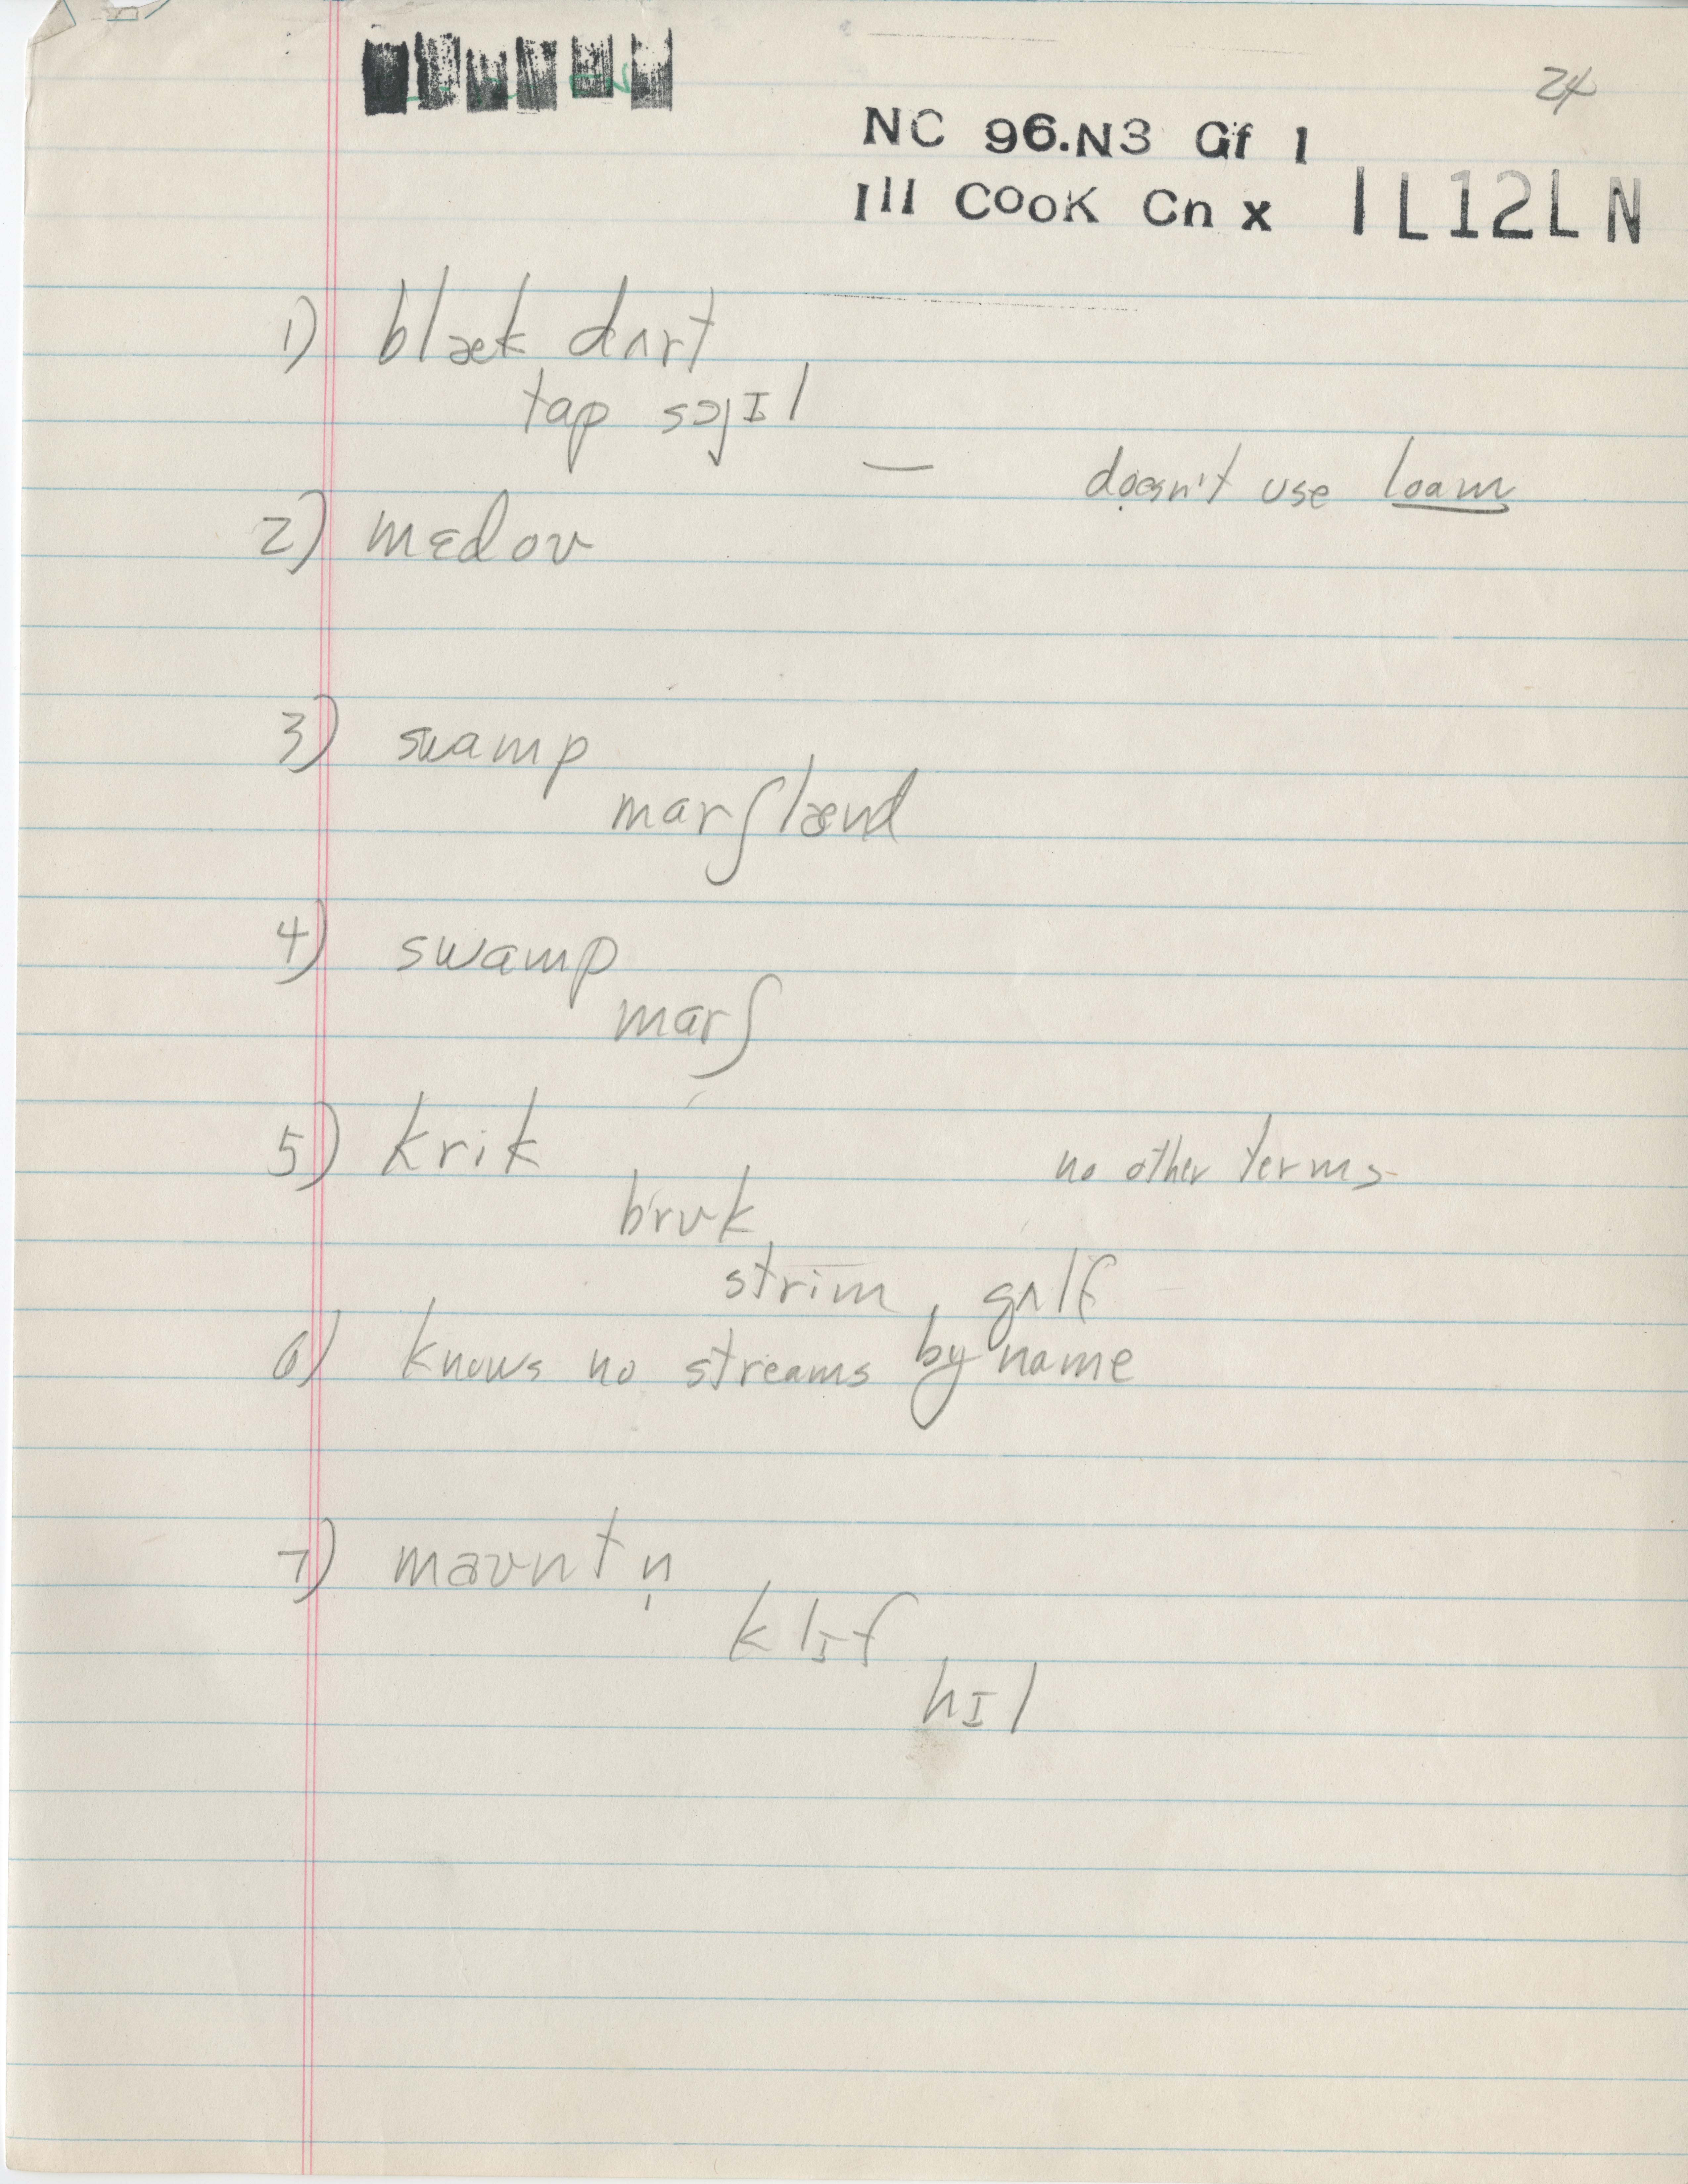 24
NC 96.N3 Gf 1
Ill COOK Cn x IL12LN
1) blæk dʌrt
tap sɔjɪl
— doesn't use loam
2) mɛdoʊ
3) swamp
marʃlænd
4) swamp
marʃ
5) krik
no other terms
brʊk
strim, gʌlf
6) knows no streams by name
7) maʊntn̩
klɪf
hɪl